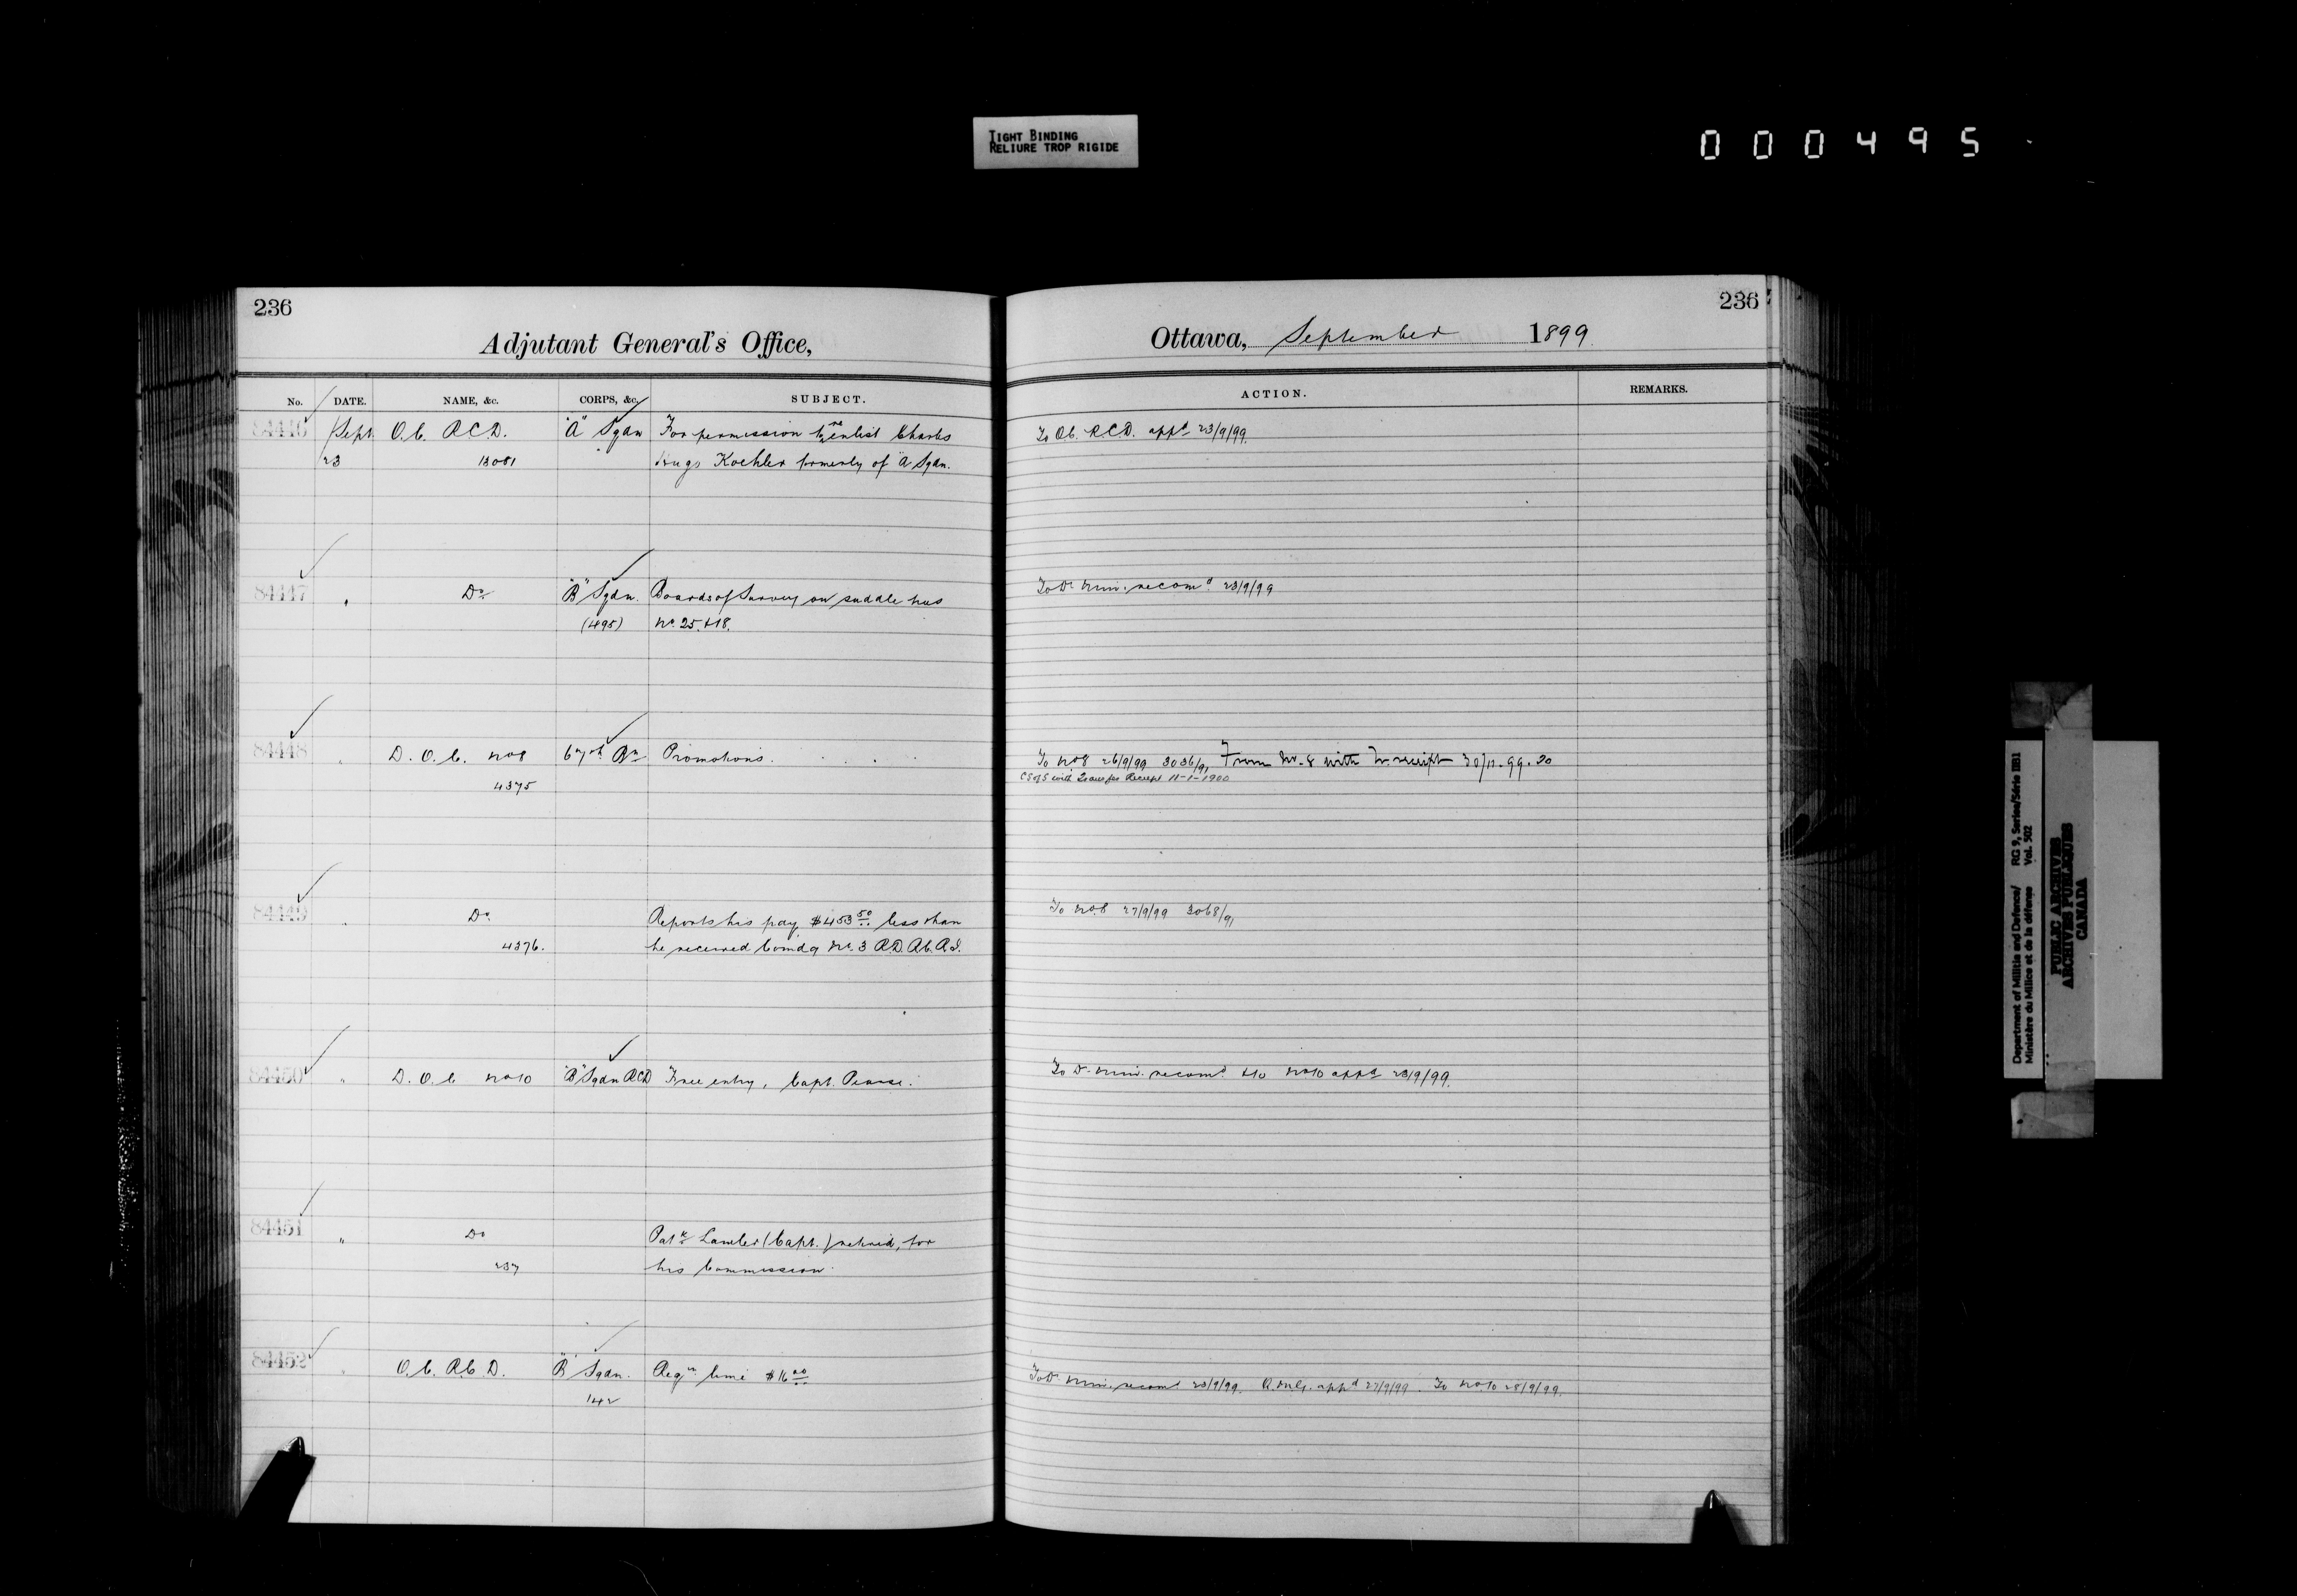 TIGHT BINDING
RELIURE TROP RIGIDE
000495
236
Adjutant General's Office,
No. DATE. NAME, &c. CORPS, &c. SUBJECT.
84446 Sept O.C. R.C.D. "A" Sqdn For permission to re enlist Charles
23 13081 Hugo Koehler formerly of "A" Sqdn.
84447 " Do "B" Sqdn. Boards of Survey on saddle trees
(495) No. 25 & 18.
84448 " D.O.C. No 8 67th Bn Promotions.
4375
84449 " Do Reports his pay $453.50 less than
4376. he received Comdg No. 3 R.D. R.C.R.I.
84450 " D.O.C. No 10 "B" Sqdn RCD Free entry, Capt. Pearse.
84451 " Do Patk Lawler (Capt.) retired, for
237 his Commission.
84452 " O.C. R.C.D. "B" Sqdn. Reqn lime $16.00
142
236
Ottawa, September 1899.
ACTION. REMARKS.
To O.C. R.C.D. appd 23/9/99.
To D. Min. recomd. 23/9/99
To No 8 26/9/99 3036/91 From No. 8 with Tr. receipt 30/11.99.30
C S of S with Transfer Receipt 11-1-1900
To No. 8 27/9/99 3068/91
To D. Min. recomd. & to No 10 appd 23/9/99.
To D. Min. recomd 23/9/99. Q.M.G. appd 27/9/99. To No 10 28/9/99.
Department of Militia and Defence/ RG 9, Series/Série IIB1
Ministère du Milice et de la défense Vol. 502
PUBLIC ARCHIVES
ARCHIVES PUBLIQUES
CANADA